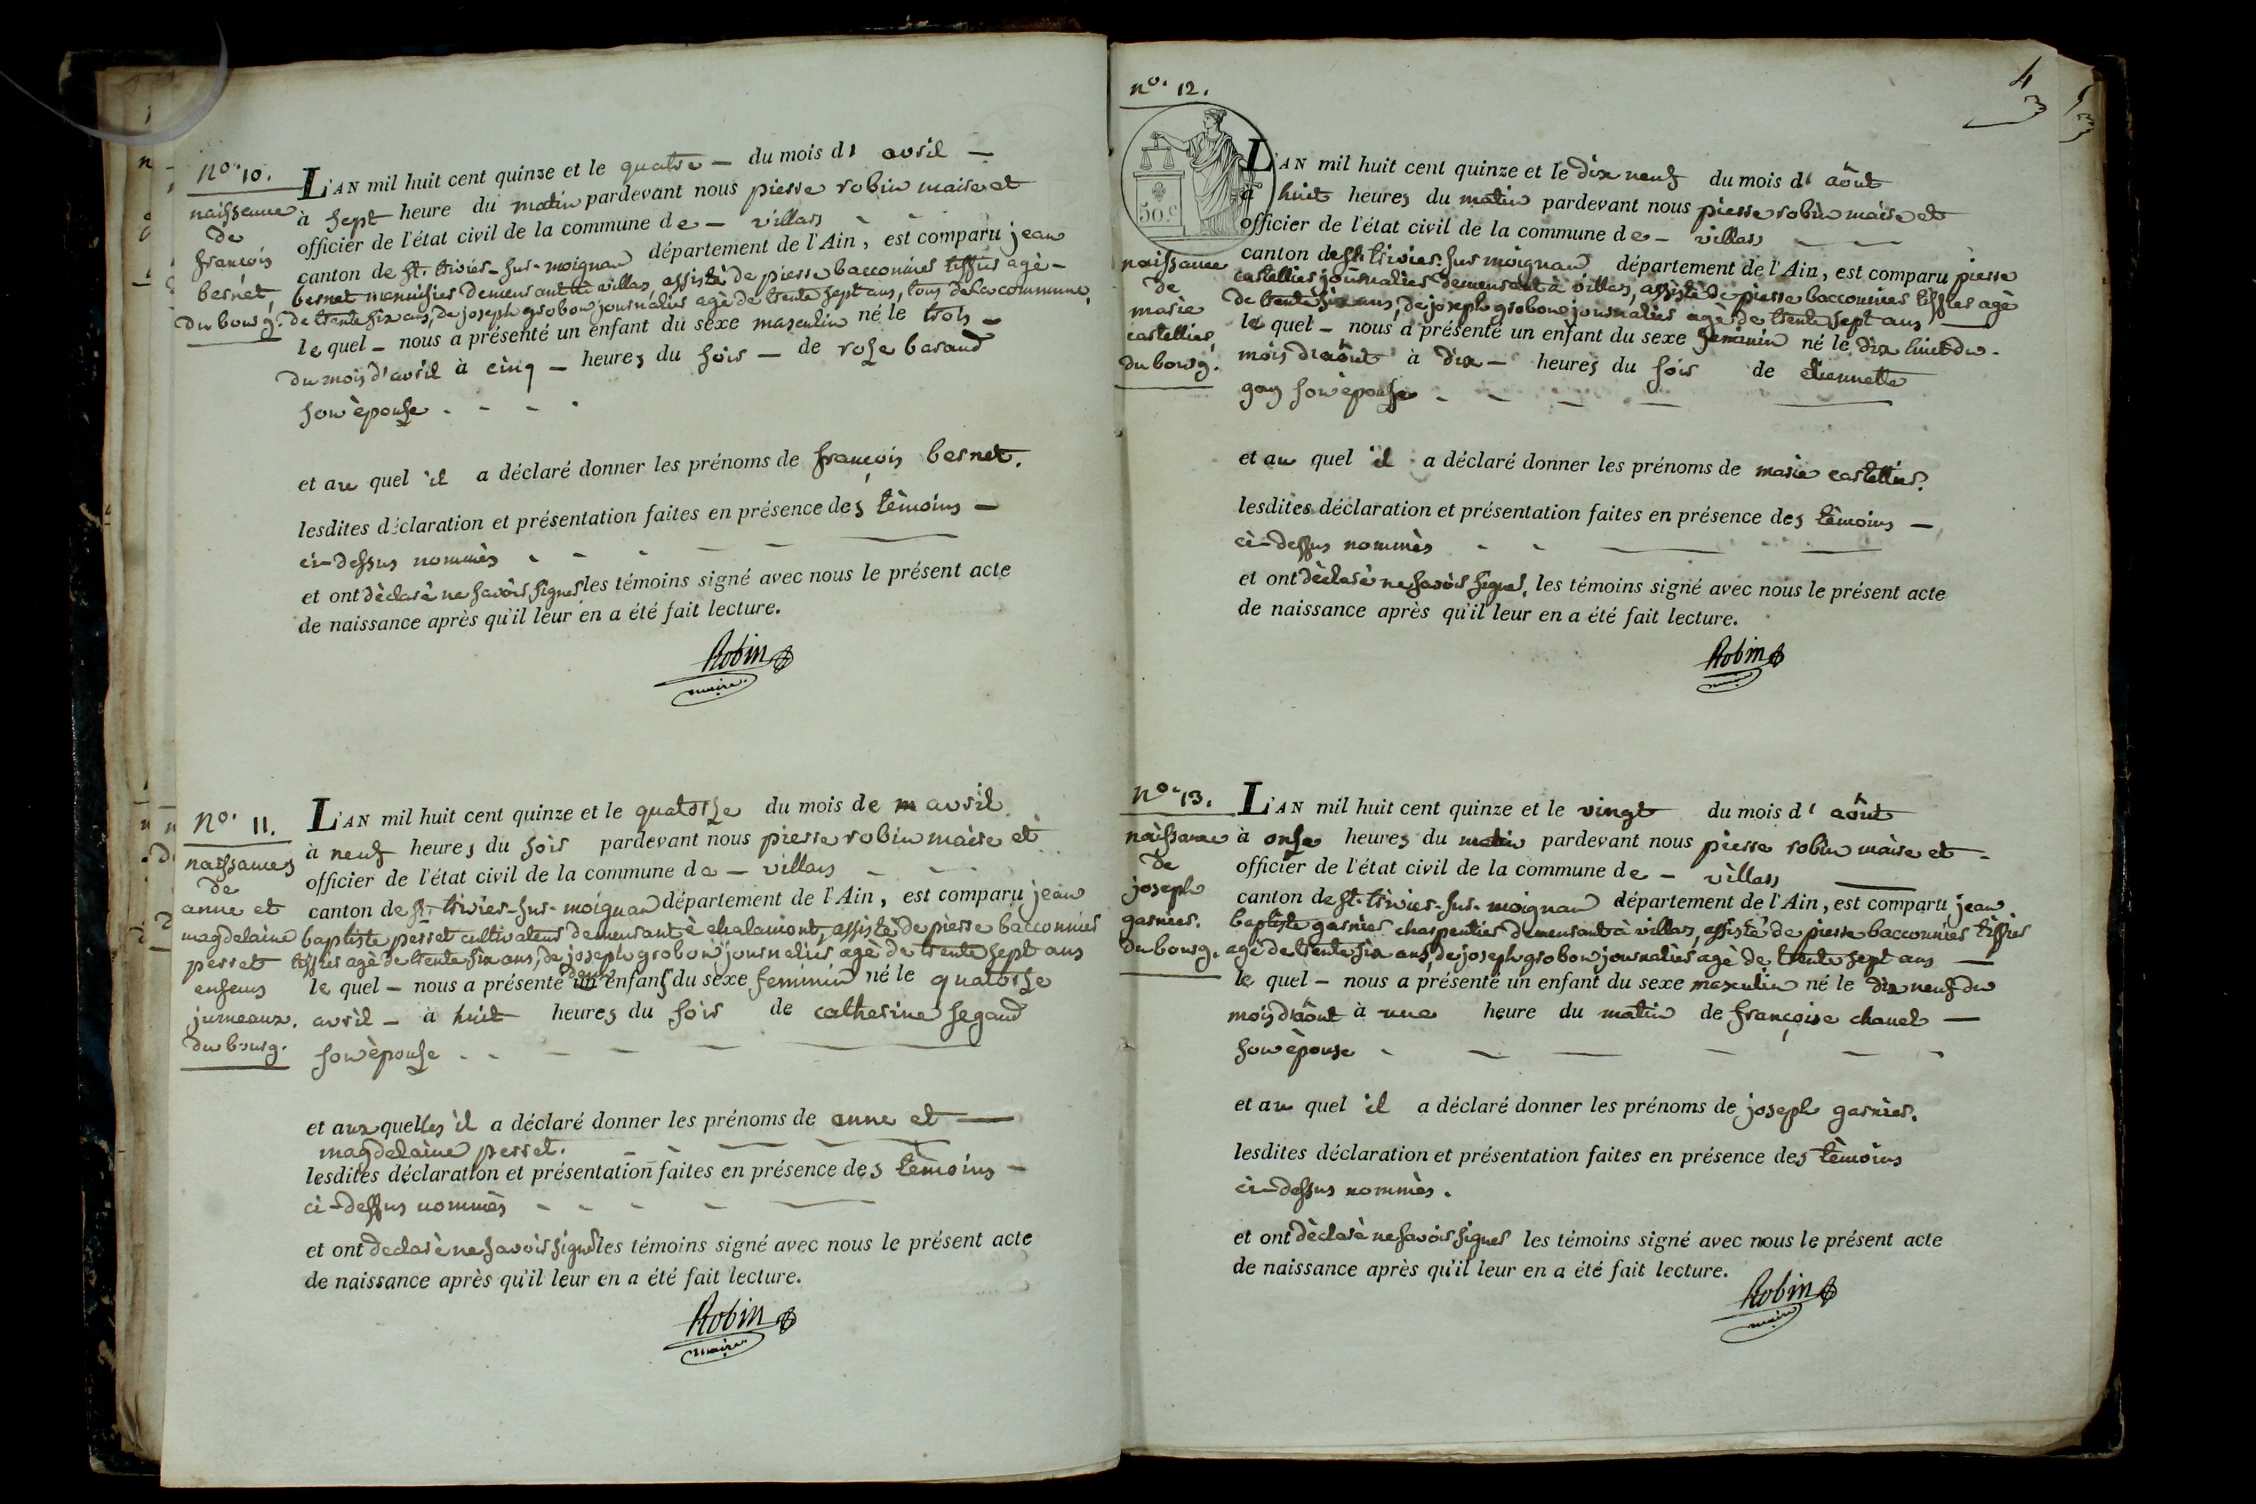 n.o 10.
naissance
de
françois
bernet,
du bourg.
L'AN mil huit cent quinze et le quatre — du mois d' avril —
à sept heure du matin pardevant nous pierre robin maire et
officier de l'état civil de la commune de — villars
canton de st. trivier-sur-moignan département de l'Ain, est comparu jean
bernet menuisier demeurant à villars, assisté de pierre bacconnier tissier agè —
de trente six ans, de joseph grobon journalier agè de trente sept ans, tous de la commune,
le quel — nous a présenté un enfant du sexe masculin né le trois —
du mois d'avril à cinq — heures du soir — de rose barand
son èpouse
et au quel il a déclaré donner les prénoms de françois bernet.
lesdites déclaration et présentation faites en présence des tèmoins —
ci-dessus nommès
et ont dèclarè ne savoir signer les témoins signé avec nous le présent acte
de naissance après qu'il leur en a été fait lecture.
Robin
maire
n.o 11.
naissances
de
anne et
magdelaine
perret
enfans
jumeaux.
du bourg.
L'AN mil huit cent quinze et le quatorze du mois de avril
à neuf heures du soir pardevant nous pierre robin maire et
officier de l'état civil de la commune de — villars
canton de st. trivier-sur-moignan département de l'Ain, est comparu jean
baptiste perret cultivateur demeurant à chalamont, assistè de pierre bacconnier
tissier agè de trente six ans, de joseph grobon journalier agè de trente sept ans
le quel — nous a présenté deux enfans du sexe feminin né le quatorze
avril — à huit heures du soir de catherine segand
son èpouse
et aux quelles il a déclaré donner les prénoms de anne et —
magdelaine perret.
lesdites déclaration et présentation faites en présence des tèmoins —
ci-dessus nommès
et ont declarè ne savoir signer les témoins signé avec nous le présent acte
de naissance après qu'il leur en a été fait lecture.
Robin
maire
4
5
n.o 12.
50 c
naissance
de
marie
castellier
du bourg.
L'AN mil huit cent quinze et le dix neuf du mois d' aôut
à huit heures du matin pardevant nous pierre robin maire et
officier de l'état civil de la commune de — villars
canton de st. trivier-sur moignan département de l'Ain, est comparu pierre
castellier journalier demeurant à villars, assistè de pierre bacconnier tissier agè
de trente six ans, de joseph grobon journalier agè de trente sept ans —
le quel — nous a présenté un enfant du sexe feminin né le dix huit du —
mois d'aôut à dix — heures du soir de etiennette
gay son èpouse
et au quel il a déclaré donner les prénoms de marie castellier.
lesdites déclaration et présentation faites en présence des tèmoins —
ci-dessus nommès
et ont dèclarè ne savoir signer, les témoins signé avec nous le présent acte
de naissance après qu'il leur en a été fait lecture.
Robin
maire
n.o 13.
naissance
de
joseph
garnier.
du bourg.
L'AN mil huit cent quinze et le vingt du mois d' aôut
à onze heures du matin pardevant nous pierre robin maire et —
officier de l'état civil de la commune de — villars
canton de st. trivier-sur-moignan département de l'Ain, est comparu jean
baptiste garnier charpentier demeurant à villars, assistè de pierre bacconnier tissier
agè de trente six ans, de joseph grobon journalier agè de trente sept ans —
le quel — nous a présenté un enfant du sexe masculin né le dix neuf du
mois d'aôut à une heure du matin de françoise chanel —
son èpouse
et au quel il a déclaré donner les prénoms de joseph garnier.
lesdites déclaration et présentation faites en présence des tèmoins
ci-dessus nommès.
et ont dèclarè ne savoir signer les témoins signé avec nous le présent acte
de naissance après qu'il leur en a été fait lecture.
Robin
maire